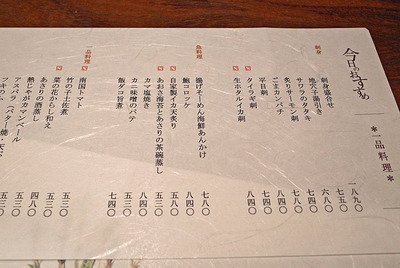 今日のおすすめ
＊一品料理＊
刺身
刺身盛合せ 一八九〇
地穴子湯引き 七五〇
サワラのタタキ 六八〇
炙りサーモン刺 七四〇
ごまカンパチ 七四〇
平目刺 八四〇
タイラギ刺 八四〇
生ホタルイカ刺 八四〇
逸品料理
揚げそーめん海鮮あんかけ 七八〇
鮑コロッケ 八四〇
自家製イカ天炙り
あおさ海苔とあさりの茶碗蒸し 五三〇
カマ塩焼き 八四〇
カニ味噌のパテ
飯ダコ旨煮 七四〇
一品料理
南国トマト
竹の子土佐煮 五三〇
菜の花からし和え
あさりの酒蒸し
熱じカマンベール 四八〇
アスパラ(バター焼・天
五三〇